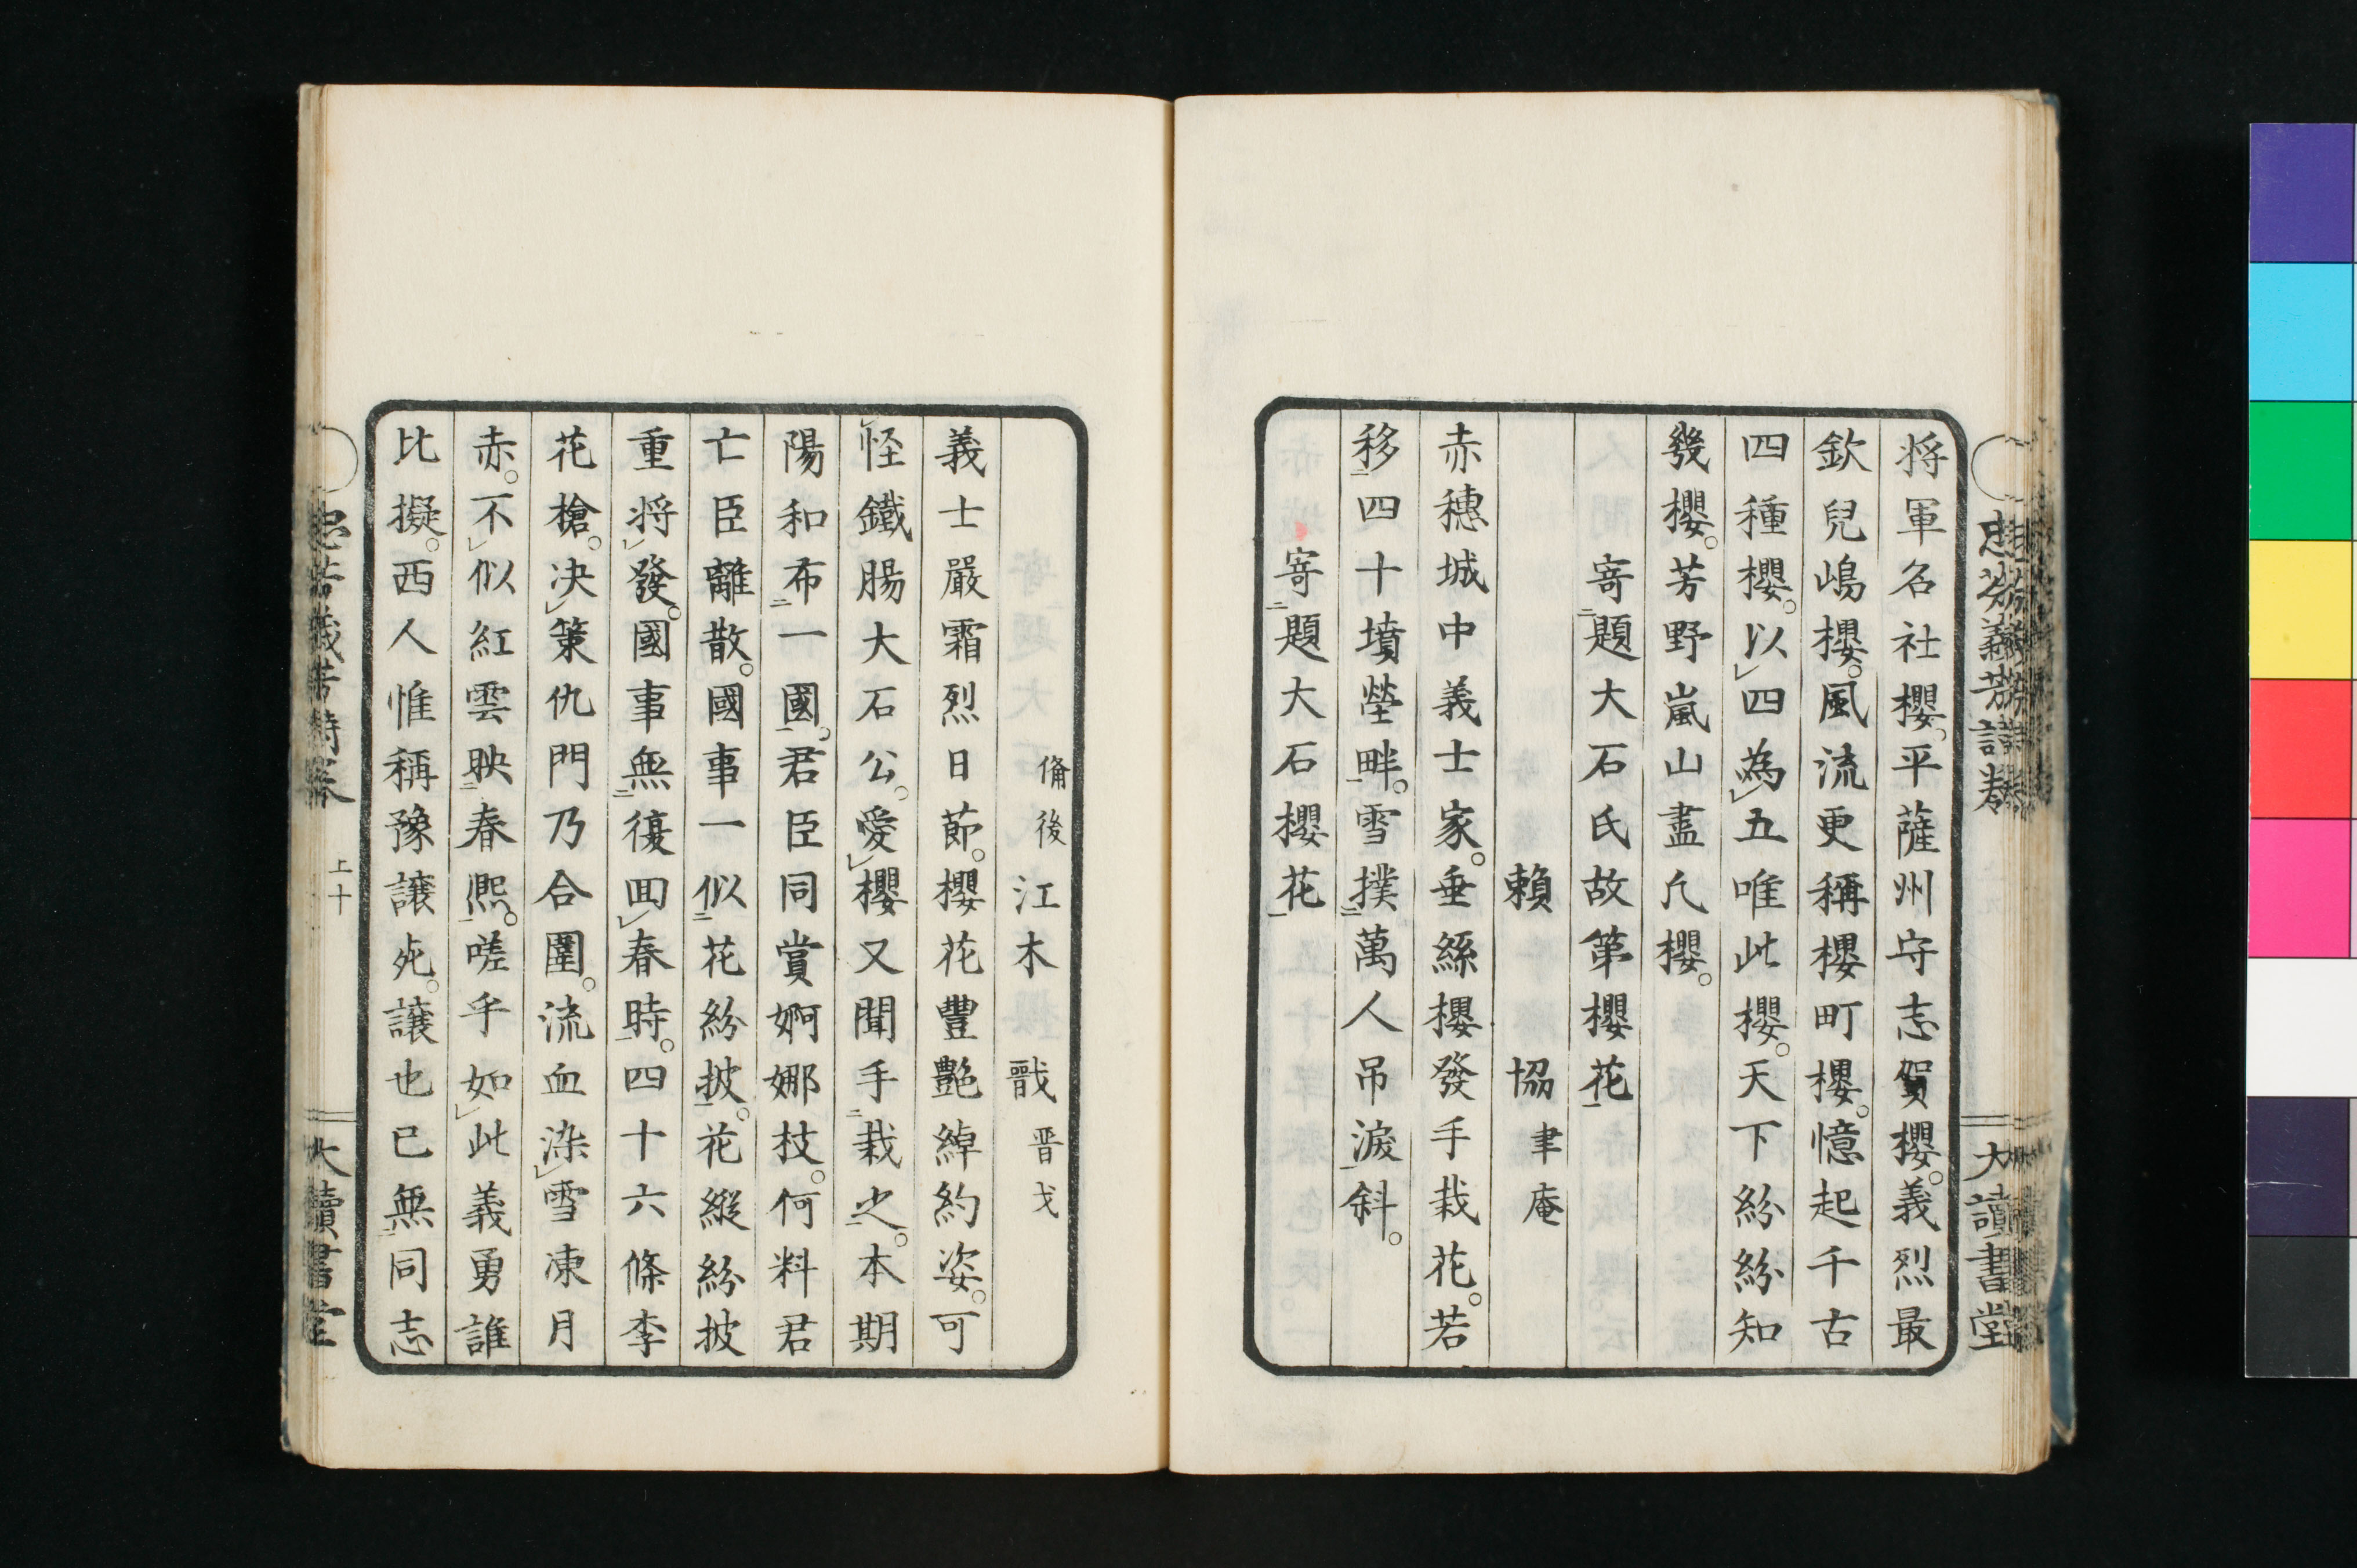 将軍名社櫻。平薩州守志賀櫻。義烈最
欽兒嶋櫻。風流更稱櫻町櫻。憶起千古
四種櫻。以レ四為レ五唯此櫻。天下紛紛知
幾櫻。芳野嵐山盡凡櫻。
寄二題大石氏故第櫻花一
賴 協 聿庵
赤穗城中義士家。垂絲櫻發手栽花。若
移二四十墳塋畔一。雪撲二萬人吊淚一斜。
寄二題大石櫻花一
備後 江木 戩 晋戈
義士嚴霜烈日節。櫻花豐艷綽約姿。可
怪鐵腸大石公。愛レ櫻又聞手二栽之一。本期
陽和布二一國一。君臣同賞婀娜技。何料君
亡臣離散。國事一似二花紛披一。花縱紛披
重將レ發。國事無二復回レ春時一。四十六條李
花槍。决レ策仇門乃合圍。流血染レ雪凍月
赤。不レ似紅雲映二春熙一。嗟乎如レ此義勇誰
比擬。西人惟稱豫讓死。讓也已無二同志
忠芬義芳詩巻
上十
大讀書堂